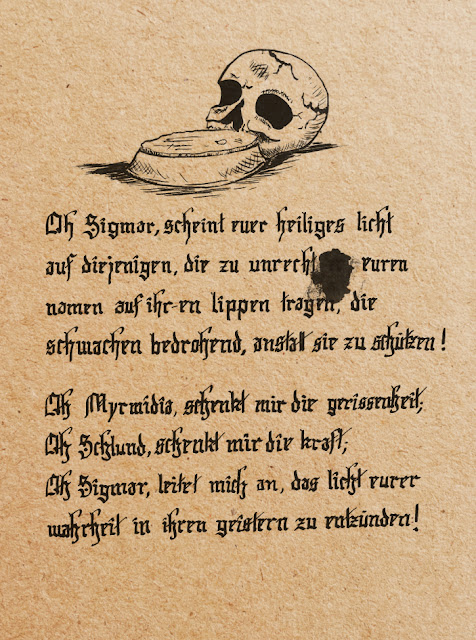 Oh Sigmar, scheint euer heiliges licht
auf diejenigen, die zu unrecht euren
namen auf ihr-en lippen tragen, die
schwachen bedrohend, anstatt sie zu schützen!
Oh Myrmidia, schenkt mir die gerissenheit;
Oh Schlund, schenkt mir die kraft;
Oh Sigmar, leitet mich an, das licht eurer
wahrheit in ihren geistern zu entzünden!